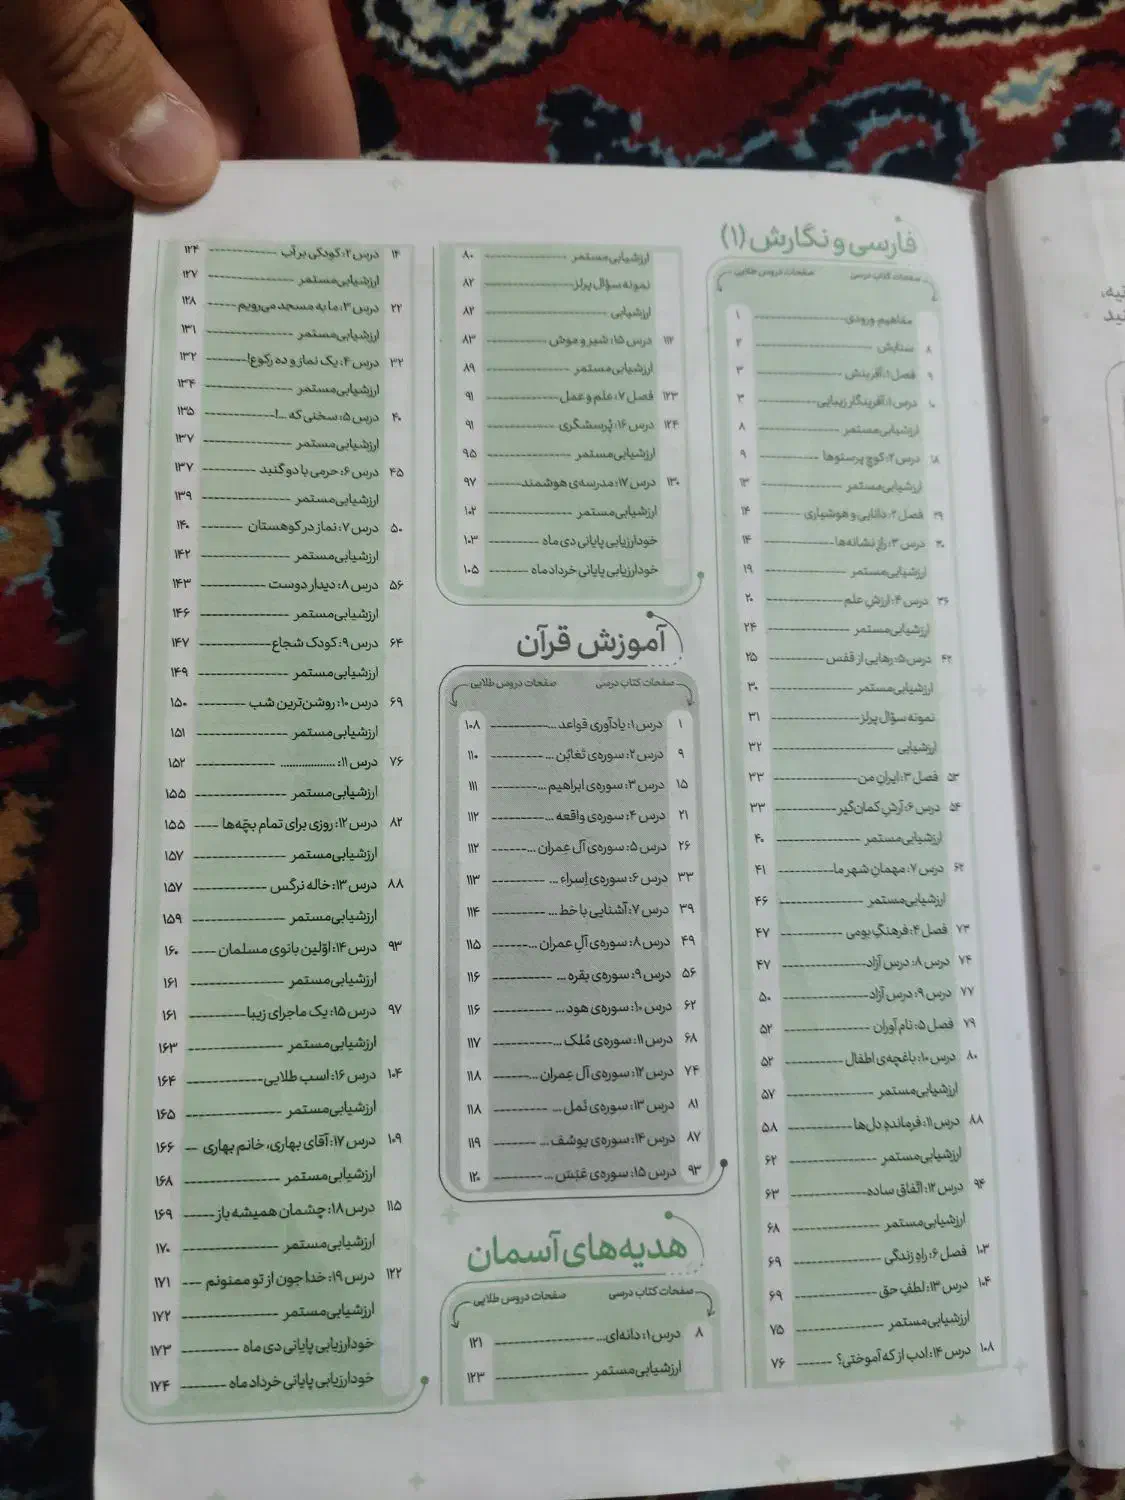 فارسی و نگارش (۱)
صفحات کتاب درسی صفحات دروس طلایی
مفاهیم ورودی ۱
۸ ستایش ۲
۹ فصل ۱: آفرینش ۳
۱۰ درس ۱: آفریدگار زیبایی ۳
ارزشیابی مستمر ۸
۱۸ درس ۲: کوچ پرستوها ۹
ارزشیابی مستمر ۱۳
۲۹ فصل ۲: دانایی و هوشیاری ۱۴
۳۰ درس ۳: راز نشانه‌ها ۱۴
ارزشیابی مستمر ۱۹
۳۶ درس ۴: ارزش علم ۲۰
ارزشیابی مستمر ۲۴
۴۲ درس ۵: رهایی از قفس ۲۵
ارزشیابی مستمر ۳۰
نمونه سؤال پرلز ۳۱
ارزشیابی ۳۲
۵۳ فصل ۳: ایران من ۳۳
۵۴ درس ۶: آرش کمان‌گیر ۳۳
ارزشیابی مستمر ۴۰
۶۲ درس ۷: مهمان شهر ما ۴۱
ارزشیابی مستمر ۴۶
۷۳ فصل ۴: فرهنگ بومی ۴۷
۷۴ درس ۸: درس آزاد ۴۷
۷۷ درس ۹: درس آزاد ۵۰
۷۹ فصل ۵: نام‌آوران ۵۲
۸۰ درس ۱۰: باغچه‌ی اطفال ۵۲
ارزشیابی مستمر ۵۷
۸۸ درس ۱۱: فرمانده دل‌ها ۵۸
ارزشیابی مستمر ۶۲
۹۴ درس ۱۲: اتّفاق ساده ۶۳
ارزشیابی مستمر ۶۸
۱۰۳ فصل ۶: راه زندگی ۶۹
۱۰۴ درس ۱۳: لطف حق ۶۹
ارزشیابی مستمر ۷۵
۱۰۸ درس ۱۴: ادب از که آموختی؟ ۷۶
ارزشیابی مستمر ۸۰
نمونه سؤال پرلز ۸۲
ارزشیابی ۸۲
۱۱۲ درس ۱۵: شیر و موش ۸۳
ارزشیابی مستمر ۸۹
۱۲۳ فصل ۷: علم و عمل ۹۱
۱۲۴ درس ۱۶: پُرسشگری ۹۱
ارزشیابی مستمر ۹۵
۱۳۰ درس ۱۷: مدرسه‌ی هوشمند ۹۷
ارزشیابی مستمر ۱۰۲
خودارزیابی پایانی دی ماه ۱۰۳
خودارزیابی پایانی خرداد ماه ۱۰۵
آموزش قرآن
صفحات کتاب درسی صفحات دروس طلایی
۱ درس ۱: یادآوری قواعد ... ۱۰۸
۹ درس ۲: سوره‌ی تَغابُن ... ۱۱۰
۱۵ درس ۳: سوره‌ی ابراهیم ... ۱۱۱
۲۱ درس ۴: سوره‌ی واقعه ... ۱۱۲
۲۶ درس ۵: سوره‌ی آل عِمران ... ۱۱۲
۳۳ درس ۶: سوره‌ی اِسراء ... ۱۱۳
۳۹ درس ۷: آشنایی با خط ... ۱۱۴
۴۹ درس ۸: سوره‌ی آلِ عمران ... ۱۱۵
۵۶ درس ۹: سوره‌ی بقره ... ۱۱۶
۶۲ درس ۱۰: سوره‌ی هود ... ۱۱۶
۶۸ درس ۱۱: سوره‌ی مُلک ... ۱۱۷
۷۴ درس ۱۲: سوره‌ی آل عِمران ... ۱۱۸
۸۱ درس ۱۳: سوره‌ی نَمل ... ۱۱۸
۸۷ درس ۱۴: سوره‌ی یوسُف ... ۱۱۹
۹۳ درس ۱۵: سوره‌ی عَبَسَ ... ۱۲۰
هدیه‌های آسمان
صفحات کتاب درسی صفحات دروس طلایی
۸ درس ۱: دانه‌ای... ۱۲۱
ارزشیابی مستمر ۱۲۳
۱۴ درس ۲: کودکی بر آب ۱۲۴
ارزشیابی مستمر ۱۲۷
۲۲ درس ۳: ما به مسجد می‌رویم ۱۲۸
ارزشیابی مستمر ۱۳۱
۳۲ درس ۴: یک نماز و ده رکوع! ۱۳۲
ارزشیابی مستمر ۱۳۴
۴۰ درس ۵: سخنی که ...! ۱۳۵
ارزشیابی مستمر ۱۳۷
۴۵ درس ۶: حرمی با دو گنبد ۱۳۷
ارزشیابی مستمر ۱۳۹
۵۰ درس ۷: نماز در کوهستان ۱۴۰
ارزشیابی مستمر ۱۴۲
۵۶ درس ۸: دیدار دوست ۱۴۳
ارزشیابی مستمر ۱۴۶
۶۴ درس ۹: کودک شجاع ۱۴۷
ارزشیابی مستمر ۱۴۹
۶۹ درس ۱۰: روشن‌ترین شب ۱۵۰
ارزشیابی مستمر ۱۵۱
۷۶ درس ۱۱: ................. ۱۵۲
ارزشیابی مستمر ۱۵۵
۸۲ درس ۱۲: روزی برای تمام بچّه‌ها ۱۵۵
ارزشیابی مستمر ۱۵۷
۸۸ درس ۱۳: خاله نرگس ۱۵۷
ارزشیابی مستمر ۱۵۹
۹۳ درس ۱۴: اوّلین بانوی مسلمان ۱۶۰
ارزشیابی مستمر ۱۶۱
۹۷ درس ۱۵: یک ماجرای زیبا ۱۶۱
ارزشیابی مستمر ۱۶۳
۱۰۴ درس ۱۶: اسب طلایی ۱۶۴
ارزشیابی مستمر ۱۶۵
۱۰۹ درس ۱۷: آقای بهاری، خانم بهاری ۱۶۶
ارزشیابی مستمر ۱۶۸
۱۱۵ درس ۱۸: چشمان همیشه باز ۱۶۹
ارزشیابی مستمر ۱۷۰
۱۲۲ درس ۱۹: خدا جون از تو ممنونم ۱۷۱
ارزشیابی مستمر ۱۷۲
خودارزیابی پایانی دی ماه ۱۷۳
خودارزیابی پایانی خرداد ماه ۱۷۴